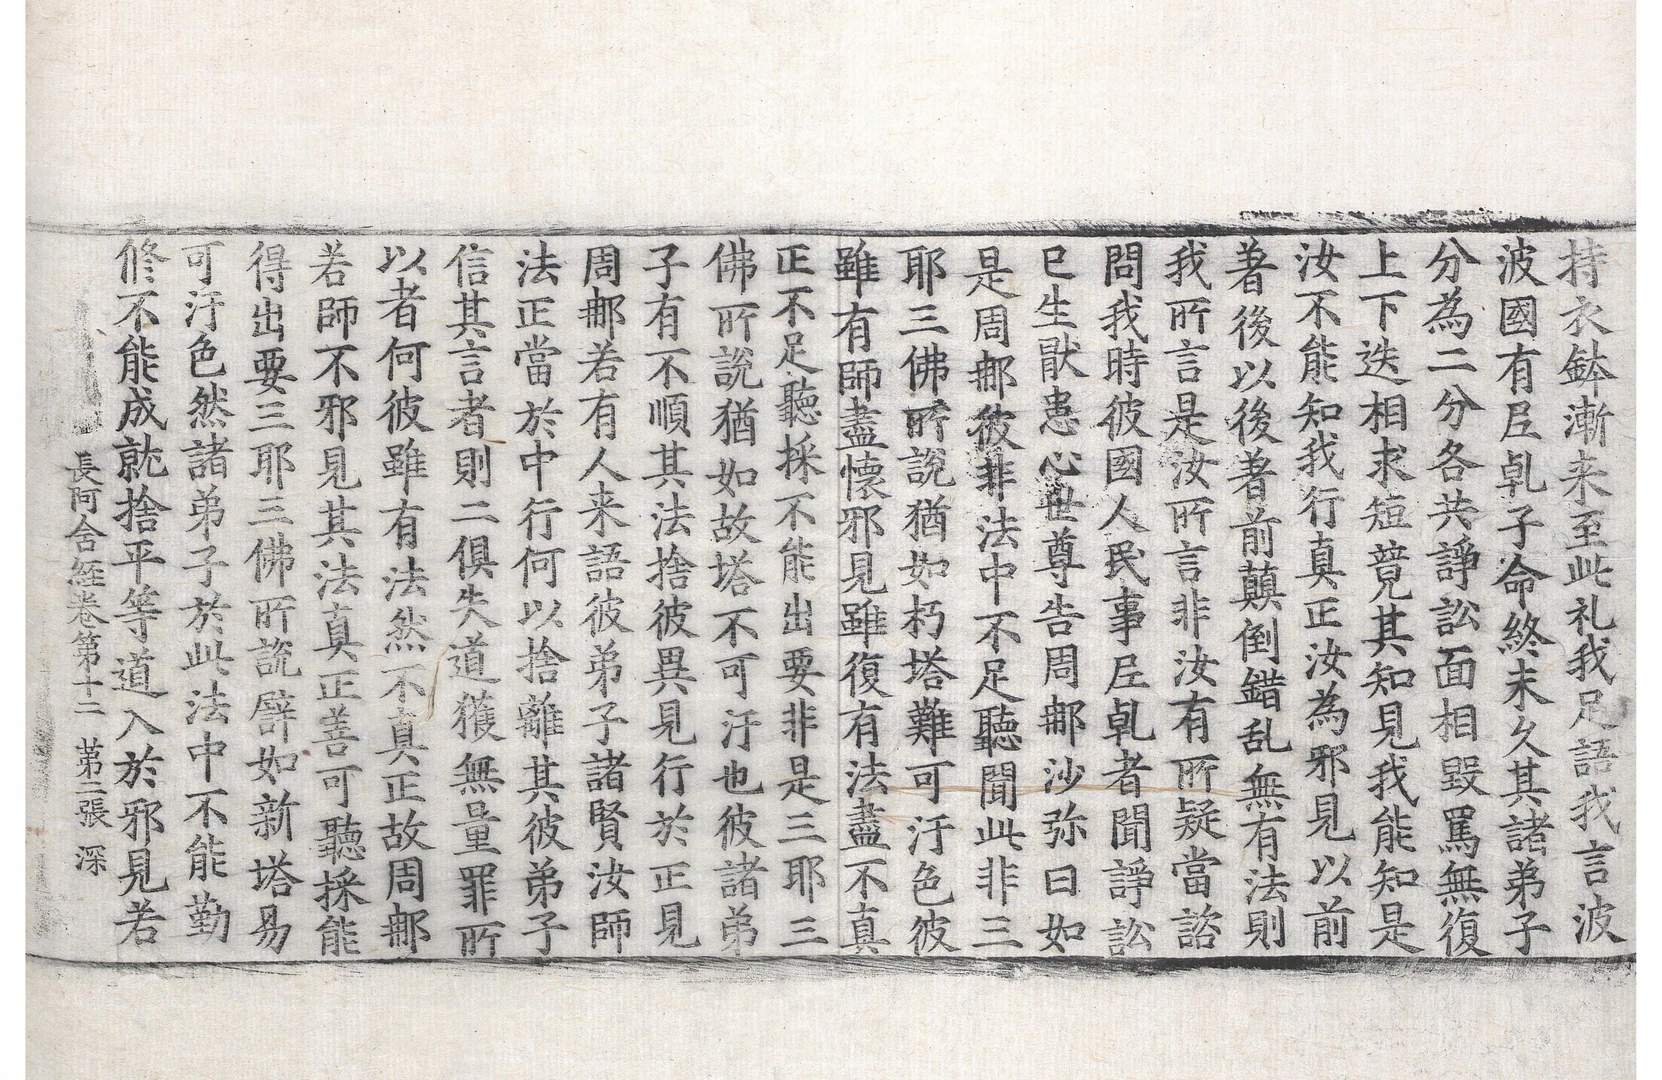 持衣鉢漸来至此礼我足語我言波
波國有𡰱乹子命終未久其諸弟子
分為二分各共諍訟面相毀罵無復
上下迭相求短競其知見我能知是
汝不能知我行真正汝為邪見以前
著後以後著前顛倒錯乱無有法則
我所言是汝所言非汝有所疑當諮
問我時彼國人民事𡰱乹者聞諍訟
已生猒患心世尊告周那沙弥曰如
是周那彼非法中不足聽聞此非三
耶三佛所說猶如朽塔難可汙色彼
雖有師盡懷邪見雖復有法盡不真
正不足聽採不能出要非是三耶三
佛所說猶如故塔不可汙也彼諸弟
子有不順其法捨彼異見行於正見
周那若有人来語彼弟子諸賢汝師
法正當於中行何以捨離其彼弟子
信其言者則二俱失道獲無量罪所
以者何彼雖有法然不真正故周那
若師不邪見其法真正善可聽採能
得出要三耶三佛所說譬如新塔易
可汙色然諸弟子於此法中不能勤
修不能成就捨平等道入於邪見若
長阿含経卷第十二　第二張　深